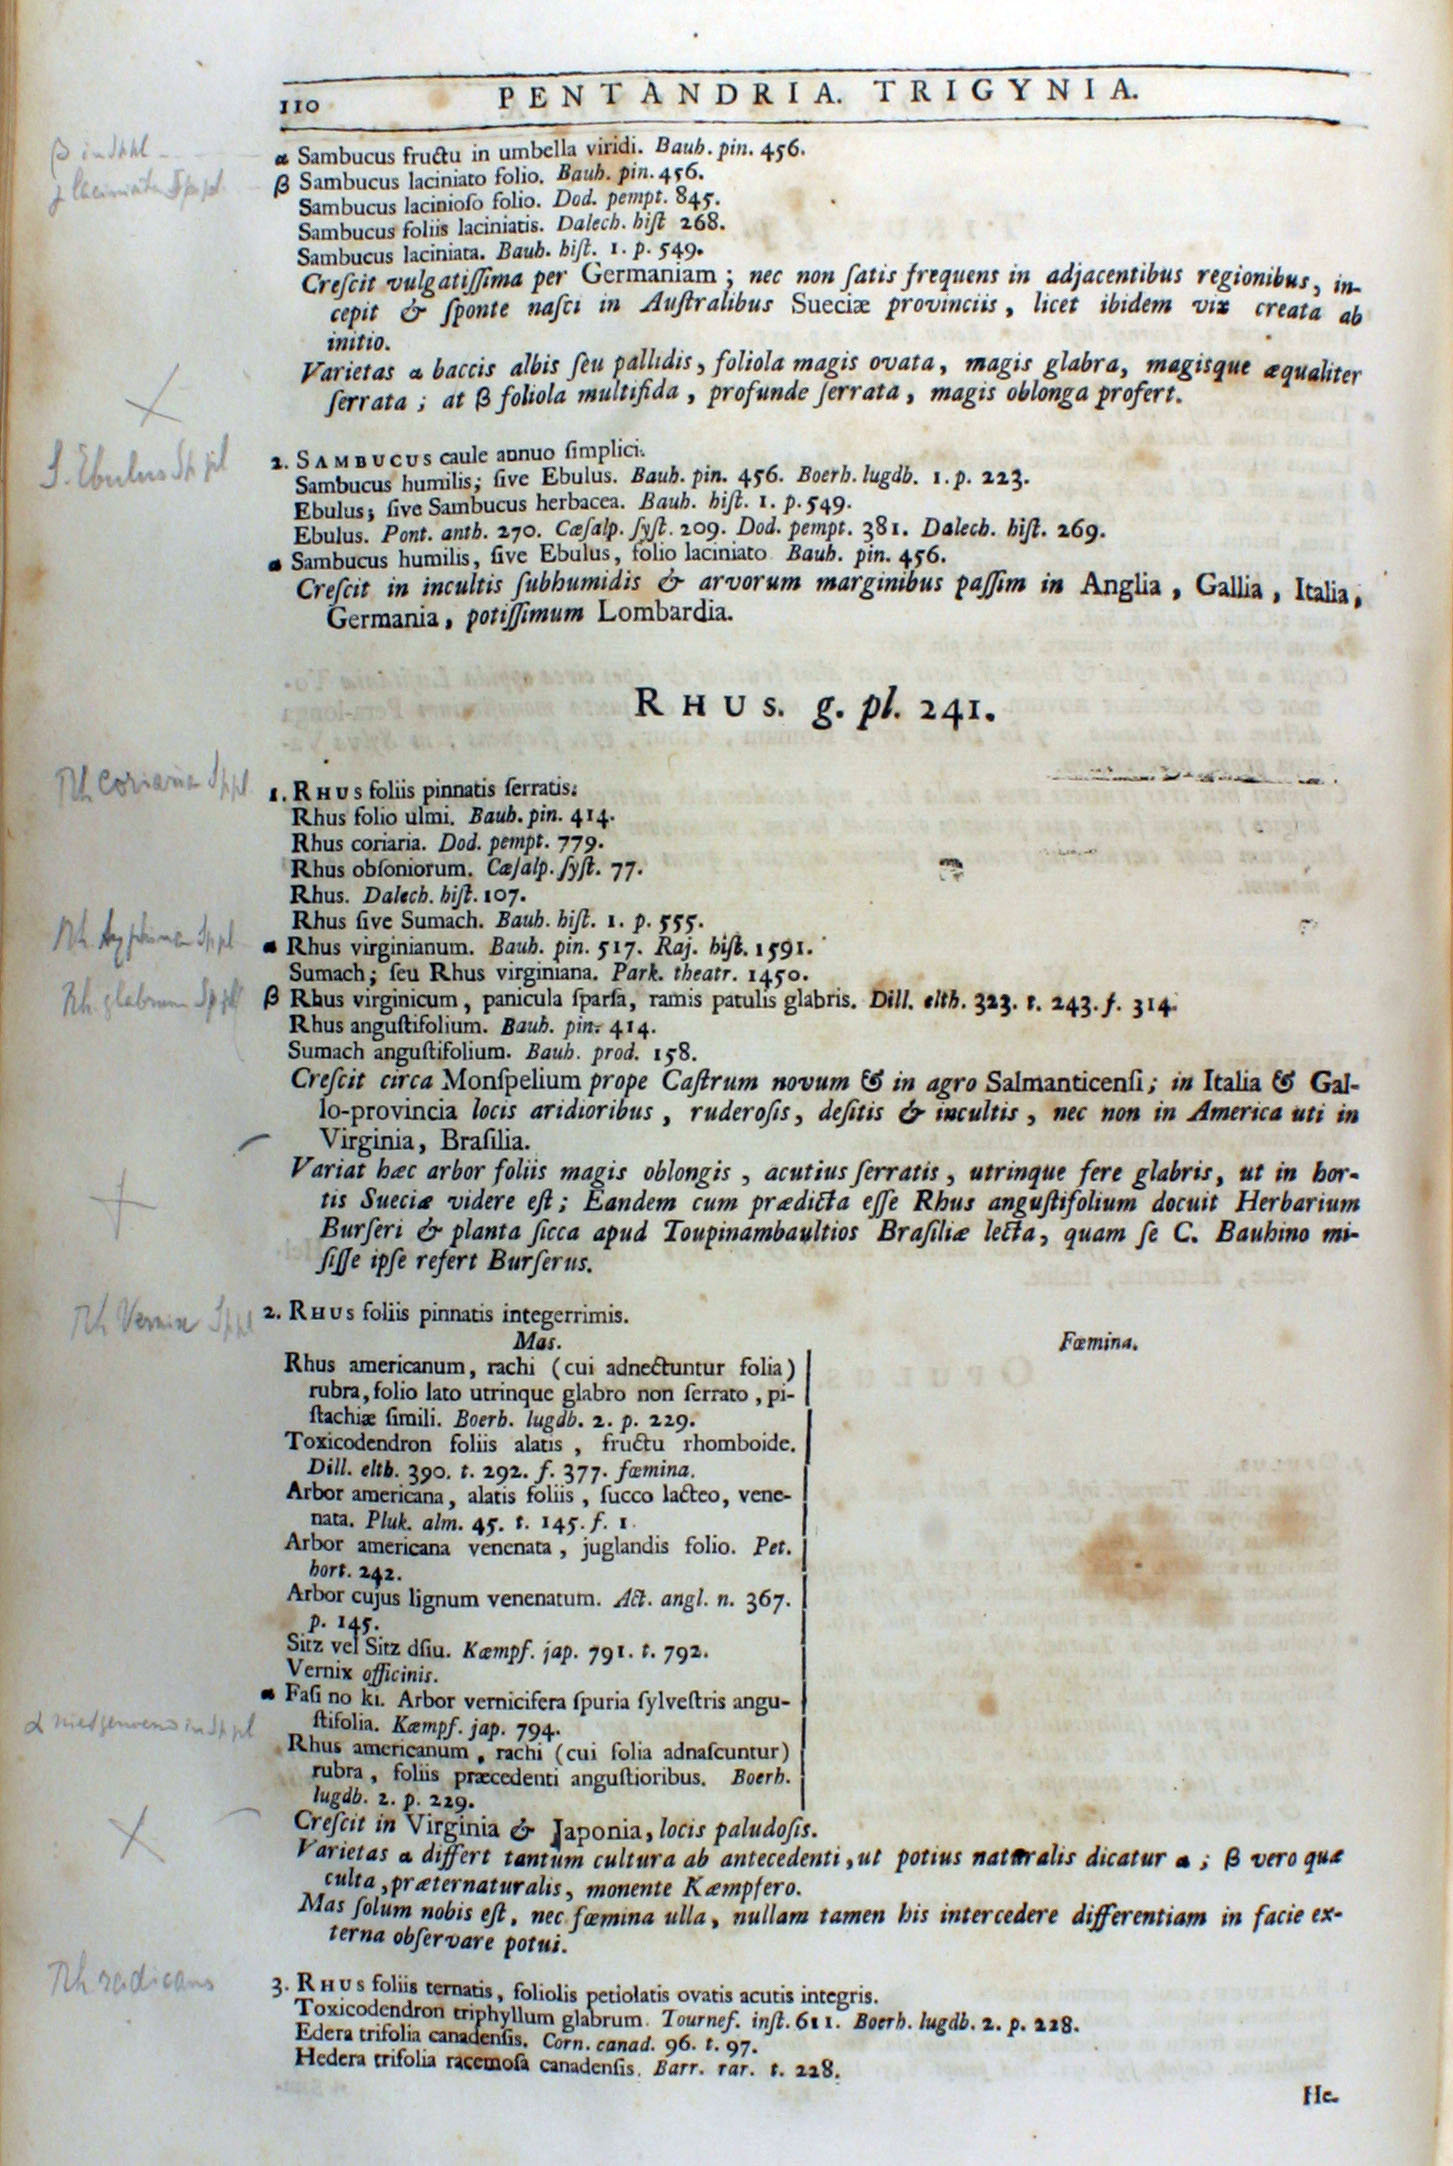 110 PENTANDRIA. TRIGYNIA.
β in Sp pl
γ laciniata Sp pl.
α Sambucus fructu in umbella viridi. Bauh. pin. 456.
β Sambucus laciniato folio. Bauh. pin. 456.
Sambucus lacinioſo folio. Dod. pempt. 845.
Sambucus foliis laciniatis. Dalech. hiſt 268.
Sambucus laciniata. Bauh. hiſt. 1. p. 549.
Creſcit vulgatiſſima per Germaniam ; nec non ſatis frequens in adjacentibus regionibus, in-
cepit & ſponte naſci in Auſtralibus Sueciæ provinciis, licet ibidem vix creata ab
initio.
Varietas α baccis albis ſeu pallidis, foliola magis ovata, magis glabra, magisque æqualiter
ſerrata ; at β foliola multifida, profunde ſerrata, magis oblonga profert.
S. Ebulus Sp pl
2. SAMBUCUS caule annuo ſimplici.
Sambucus humilis; ſive Ebulus. Bauh. pin. 456. Boerh. lugdb. 1. p. 223.
Ebulus; ſive Sambucus herbacea. Bauh. hiſt. 1. p. 549.
Ebulus. Pont. anth. 270. Cæſalp. ſyſt. 209. Dod. pempt. 381. Dalech. hiſt. 269.
α Sambucus humilis, ſive Ebulus, folio laciniato Bauh. pin. 456.
Creſcit in incultis ſubhumidis & arvorum marginibus paſſim in Anglia, Gallia, Italia,
Germania, potiſſimum Lombardia.
RHUS. g. pl. 241.
Rh coriaria Sp pl
1. RHUS foliis pinnatis ſerratis.
Rhus folio ulmi. Bauh. pin. 414.
Rhus coriaria. Dod. pempt. 779.
Rhus obſoniorum. Cæſalp. ſyſt. 77.
Rhus. Dalech. hiſt. 107.
Rhus ſive Sumach. Bauh. hiſt. 1. p. 555.
Rh. typhina Sp pl
α Rhus virginianum. Bauh. pin. 517. Raj. hiſt. 1591.
Sumach; ſeu Rhus virginiana. Park. theatr. 1450.
Rh. glabrum Sp pl
β Rhus virginicum, panicula ſparſa, ramis patulis glabris. Dill. elth. 323. t. 243. f. 314.
Rhus anguſtifolium. Bauh. pin. 414.
Sumach anguſtifolium. Bauh. prod. 158.
Creſcit circa Monſpelium prope Caſtrum novum & in agro Salmanticenſi; in Italia & Gal-
lo-provincia locis aridioribus, ruderoſis, deſitis & incultis, nec non in America uti in
Virginia, Braſilia.
Variat hæc arbor foliis magis oblongis, acutius ſerratis, utrinque fere glabris, ut in hor-
tis Sueciæ videre eſt; Eandem cum prædicta eſſe Rhus anguſtifolium docuit Herbarium
Burſeri & planta ſicca apud Toupinambaultios Braſiliæ lecta, quam ſe C. Bauhino mi-
ſiſſe ipſe refert Burſerus.
Rh Vernix Sp pl
2. RHUS foliis pinnatis integerrimis.
Mas. Fœmina.
Rhus americanum, rachi (cui adnectuntur folia)
rubra, folio lato utrinque glabro non ſerrato, pi-
ſtachiæ ſimili. Boerh. lugdb. 2. p. 229.
Toxicodendron foliis alatis, fructu rhomboide.
Dill. elth. 390. t. 292. f. 377. fœmina.
Arbor americana, alatis foliis, ſucco lacteo, vene-
nata. Pluk. alm. 45. t. 145. f. 1.
Arbor americana venenata, juglandis folio. Pet.
hort. 242.
Arbor cujus lignum venenatum. Act. angl. n. 367.
p. 145.
Sitz vel Sitz dſiu. Kæmpf. jap. 791. t. 792.
Vernix officinis.
α Faſi no ki. Arbor vernicifera ſpuria ſylveſtris angu-
ſtifolia. Kæmpf. jap. 794.
α niet genoemd in Sp pl
Rhus americanum, rachi (cui folia adnaſcuntur)
rubra, foliis præcedenti anguſtioribus. Boerh.
lugdb. 2. p. 229.
Creſcit in Virginia & Japonia, locis paludoſis.
Varietas α differt tantum cultura ab antecedenti, ut potius naturalis dicatur α; β vero quæ
culta, præternaturalis, monente Kæmpfero.
Mas ſolum nobis eſt, nec fœmina ulla, nullam tamen his intercedere differentiam in facie ex-
terna obſervare potui.
Rh radicans
3. RHUS foliis ternatis, foliolis petiolatis ovatis acutis integris.
Toxicodendron triphyllum glabrum. Tournef. inſt. 611. Boerh. lugdb. 2. p. 228.
Edera trifolia canadenſis. Corn. canad. 96. t. 97.
Hedera trifolia racemoſa canadenſis. Barr. rar. t. 228.
He-